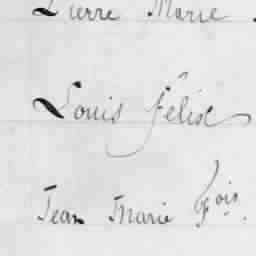 Pierre Marie
Louis Félix
Jean Marie Fois.